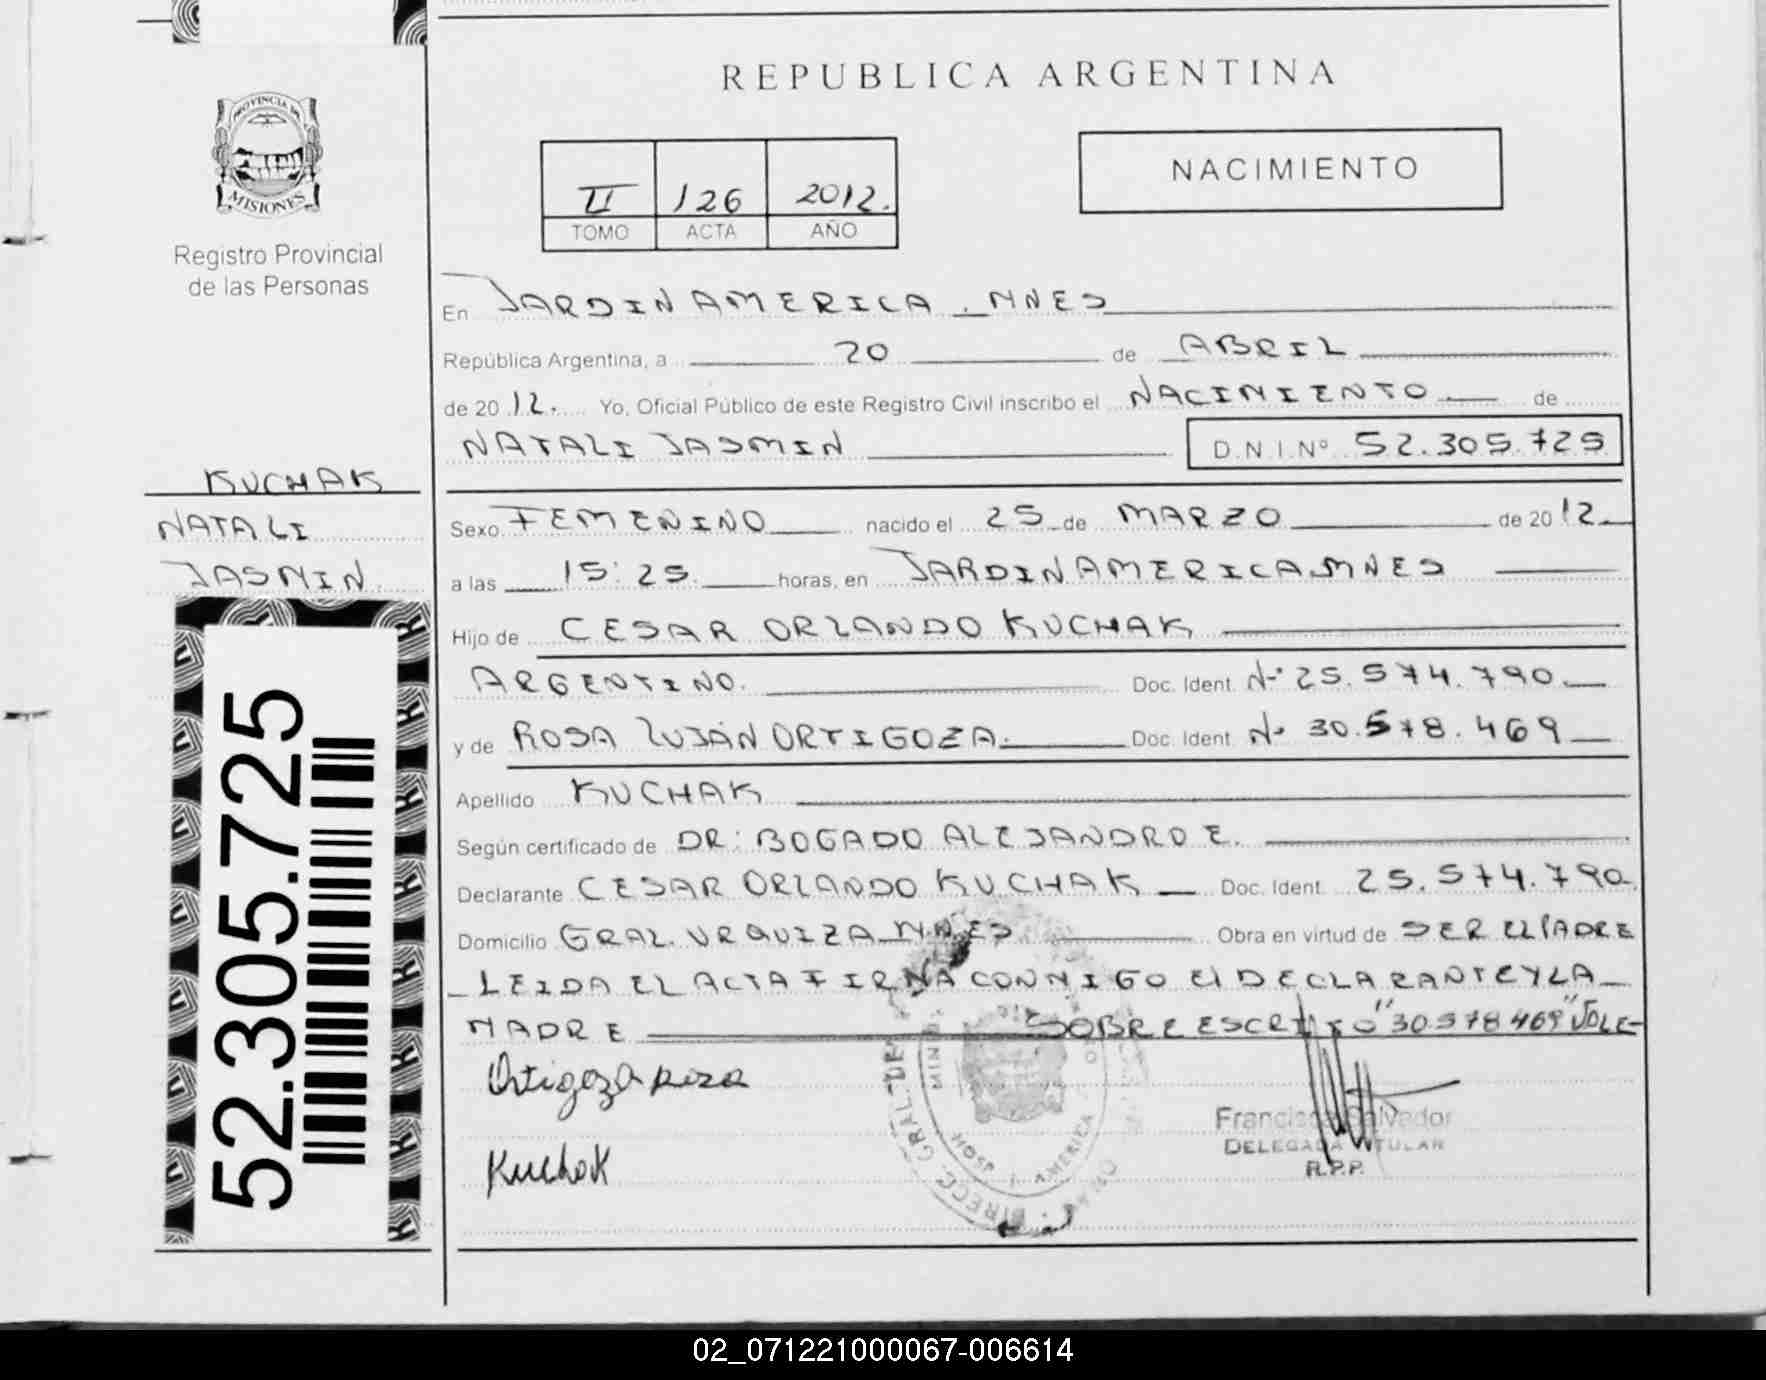 REPUBLICA ARGENTINA
PROVINCIA DE
MISIONES
Registro Provincial
de las Personas
II 126 2012.
TOMO ACTA AÑO
NACIMIENTO
En JARDIN AMERICA . MNES
República Argentina, a 20 de ABRIL
de 20 12. Yo, Oficial Público de este Registro Civil inscribo el NACIMIENTO de
NATALI JASMIN D.N.I.Nº 52.305.725
KUCHAK
NATALI
JASMIN
Sexo FEMENINO nacido el 25 de MARZO de 2012.
a las 15:25. horas, en JARDIN AMERICA MNES
Hijo de CESAR ORLANDO KUCHAK
ARGENTINO. Doc. Ident. Nº 25.574.790.
y de ROSA LUJÁN ORTIGOZA. Doc. Ident. Nº 30.578.469
Apellido KUCHAK
Según certificado de DR: BOGADO ALEJANDRO E.
Declarante CESAR ORLANDO KUCHAK Doc. Ident. 25.574.790
Domicilio GRAL. URQUIZA MNES Obra en virtud de SER EL PADRE
LEIDA EL ACTA FIRMA CONMIGO El DECLARANTE Y LA
MADRE SOBRE ESCRITO "30.578.469" VALE-
Ortigoza Rosa
Kuchak
Francisca Salvador
DELEGADA TITULAR
R.P.P.
HOSP. J. AMERICA
52.305.725
02_071221000067-006614